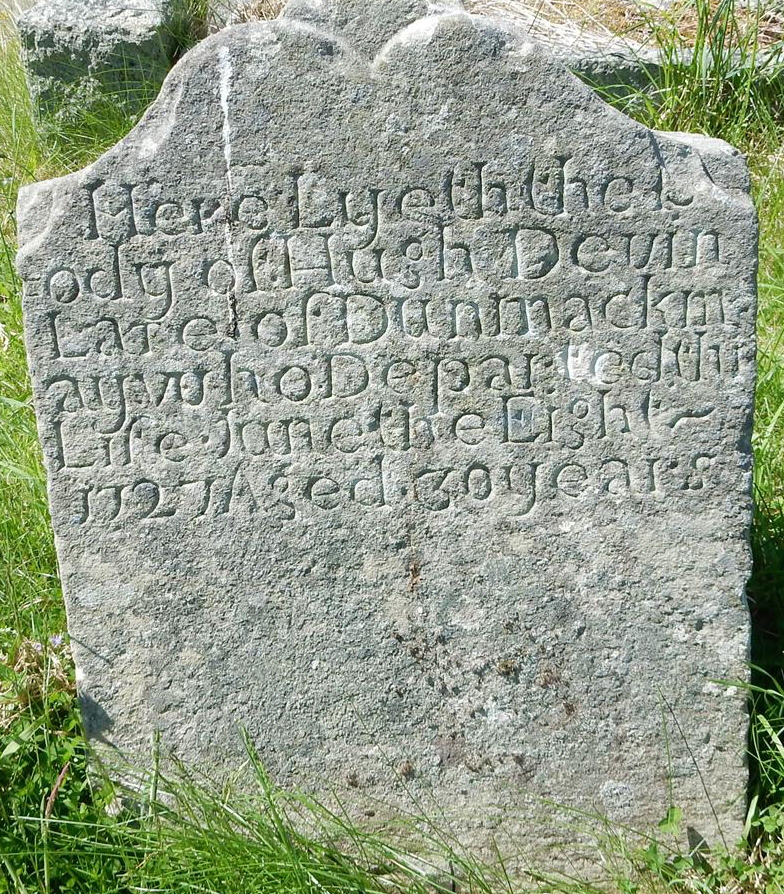 Here Lyeth the
ody of Hugh Devin
Late of Dunmackm
ay who Departed thi
Life June the Eight
1727 Aged 30 years